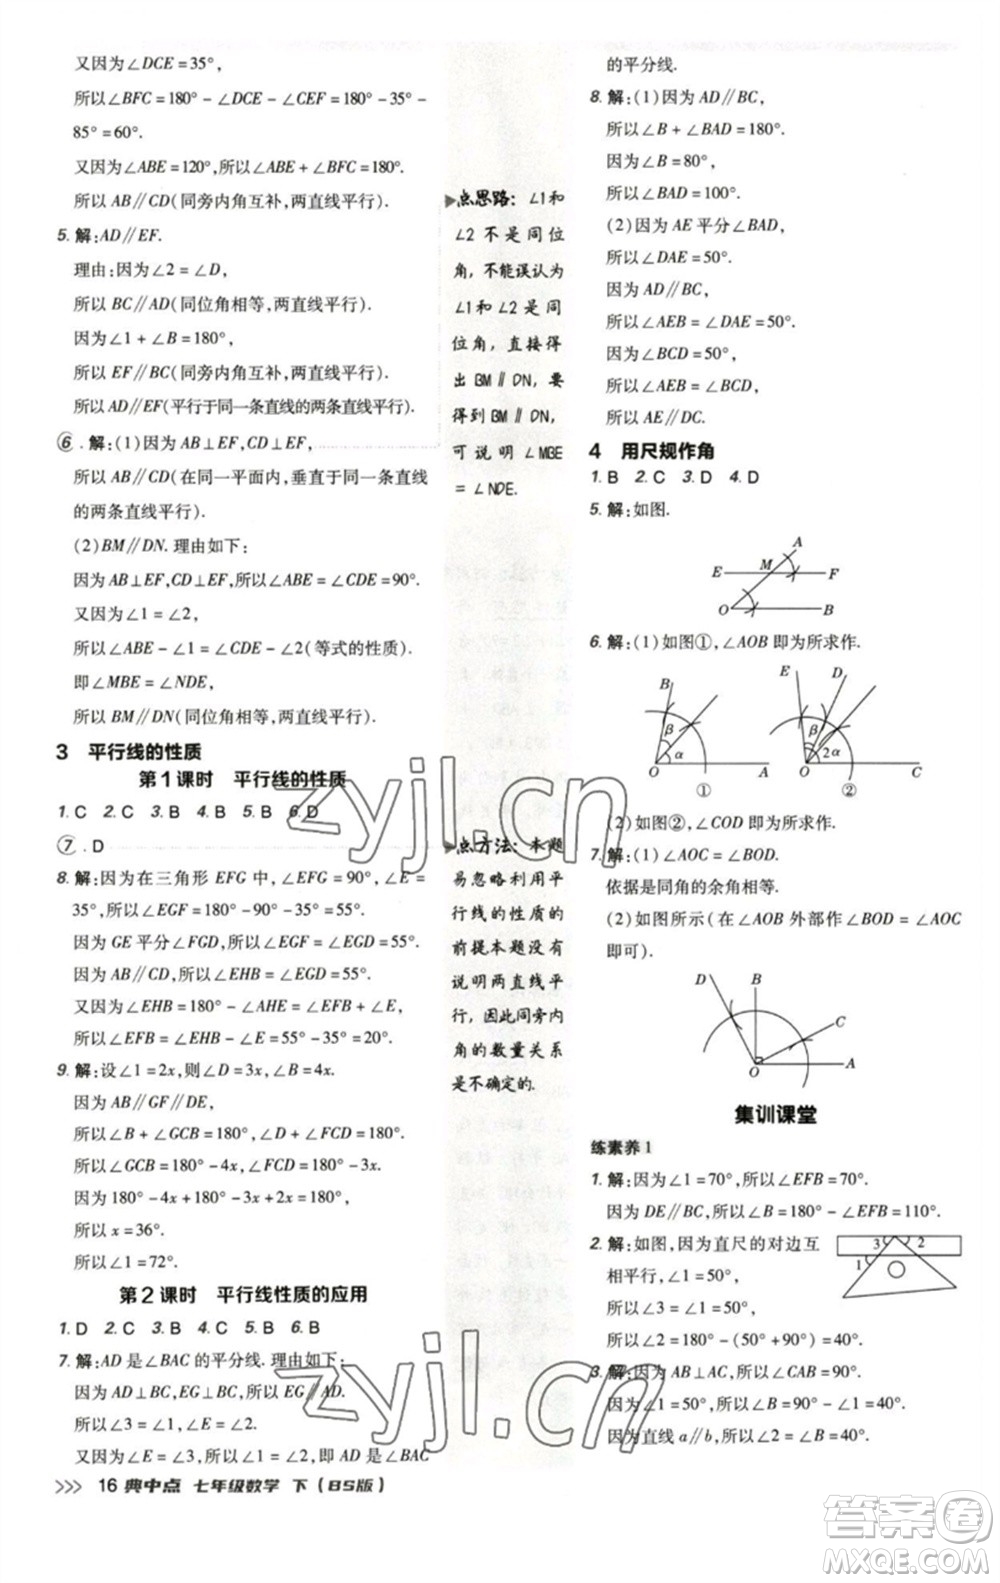 又因为∠DCE=35°,
所以∠BFC=180°-∠DCE-∠CEF=180°-35°-
85°=60°.
又因为∠ABE=120°,所以∠ABE+∠BFC=180°.
所以AB∥CD(同旁内角互补,两直线平行).
5.解:AD∥EF.
理由:因为∠2=∠D,
所以BC∥AD(同位角相等,两直线平行).
因为∠1+∠B=180°,
所以EF∥BC(同旁内角互补,两直线平行).
所以AD∥EF(平行于同一条直线的两条直线平行).
6.解:(1)因为AB⊥EF,CD⊥EF,
所以AB∥CD(在同一平面内,垂直于同一条直线
的两条直线平行).
(2)BM∥DN.理由如下:
因为AB⊥EF,CD⊥EF,所以∠ABE=∠CDE=90°.
又因为∠1=∠2,
所以∠ABE-∠1=∠CDE-∠2(等式的性质).
即∠MBE=∠NDE,
所以BM∥DN(同位角相等,两直线平行).
3 平行线的性质
第1课时 平行线的性质
1.C 2.C 3.B 4.B 5.B 6.D
7.D
8.解:因为在三角形EFG中,∠EFG=90°,∠E=
35°,所以∠EGF=180°-90°-35°=55°.
因为GE平分∠FGD,所以∠EGF=∠EGD=55°.
因为AB∥CD,所以∠EHB=∠EGD=55°.
又因为∠EHB=180°-∠AHE=∠EFB+∠E,
所以∠EFB=∠EHB-∠E=55°-35°=20°.
9.解:设∠1=2x,则∠D=3x,∠B=4x.
因为AB∥GF∥DE,
所以∠B+∠GCB=180°,∠D+∠GCD=180°.
所以∠GCB=180°-4x,∠GCD=180°-3x.
因为180°-4x+180°-3x+2x=180°,
所以x=36°.
所以∠1=72°.
第2课时 平行线性质的应用
1.D 2.C 3.B 4.C 5.B 6.B
7.解:AD是∠BAC的平分线.理由如下:
因为AD⊥BC,EG⊥BC,所以EG∥AD.
所以∠3=∠1,∠E=∠2.
又因为∠E=∠3,所以∠1=∠2,即AD是∠BAC
16 典中点 七年级数学 下(BS版)
点思路:∠1和
∠2不是同位
角,不能误认为
∠1和∠2是同
位角,直接得
出BM∥DN,要
得到BM∥DN,
可说明∠MBE
=∠NDE.
点方法:本题
易忽略利用平
行线的性质的
前提本题没有
说明两直线平
行,因此同旁内
角的数量关系
是不确定的.
的平分线.
8.解:(1)因为AD∥BC,
所以∠B+∠BAD=180°.
因为∠B=80°,
所以∠BAD=100°.
(2)因为AE平分∠BAD,
所以∠DAE=50°.
因为AD∥BC,
所以∠AEB=∠DAE=50°.
因为∠BCD=50°,
所以∠AEB=∠BCD,
所以AE∥DC.
4 用尺规作角
1.B 2.C 3.D 4.D
5.解:如图.
A
E M F
O B
6.解:(1)如图①,∠AOB即为所求作.
B E D
β β
α 2α
O A O C
① ②
(2)如图②,∠COD即为所求作.
7.解:(1)∠AOC=∠BOD.
依据是同角的余角相等.
(2)如图所示(在∠AOB外部作∠BOD=∠AOC
即可).
D B
C
O A
集训课堂
练素养1
1.解:因为∠1=70°,所以∠EFB=70°.
因为DE∥BC,所以∠B=180°-∠EFB=110°.
2.解:如图,因为直尺的对边互
相平行,∠1=50°,
所以∠3=∠1=50°,
所以∠2=180°-(50°+90°)=40°.
3 2
1
3.解:因为AB⊥AC,所以∠CAB=90°.
因为∠1=50°,所以∠ABC=90°-∠1=40°.
因为直线a∥b,所以∠2=∠ABC=40°.
zyjl.cn
zyjl.cn
答案圈
MXQE.COM